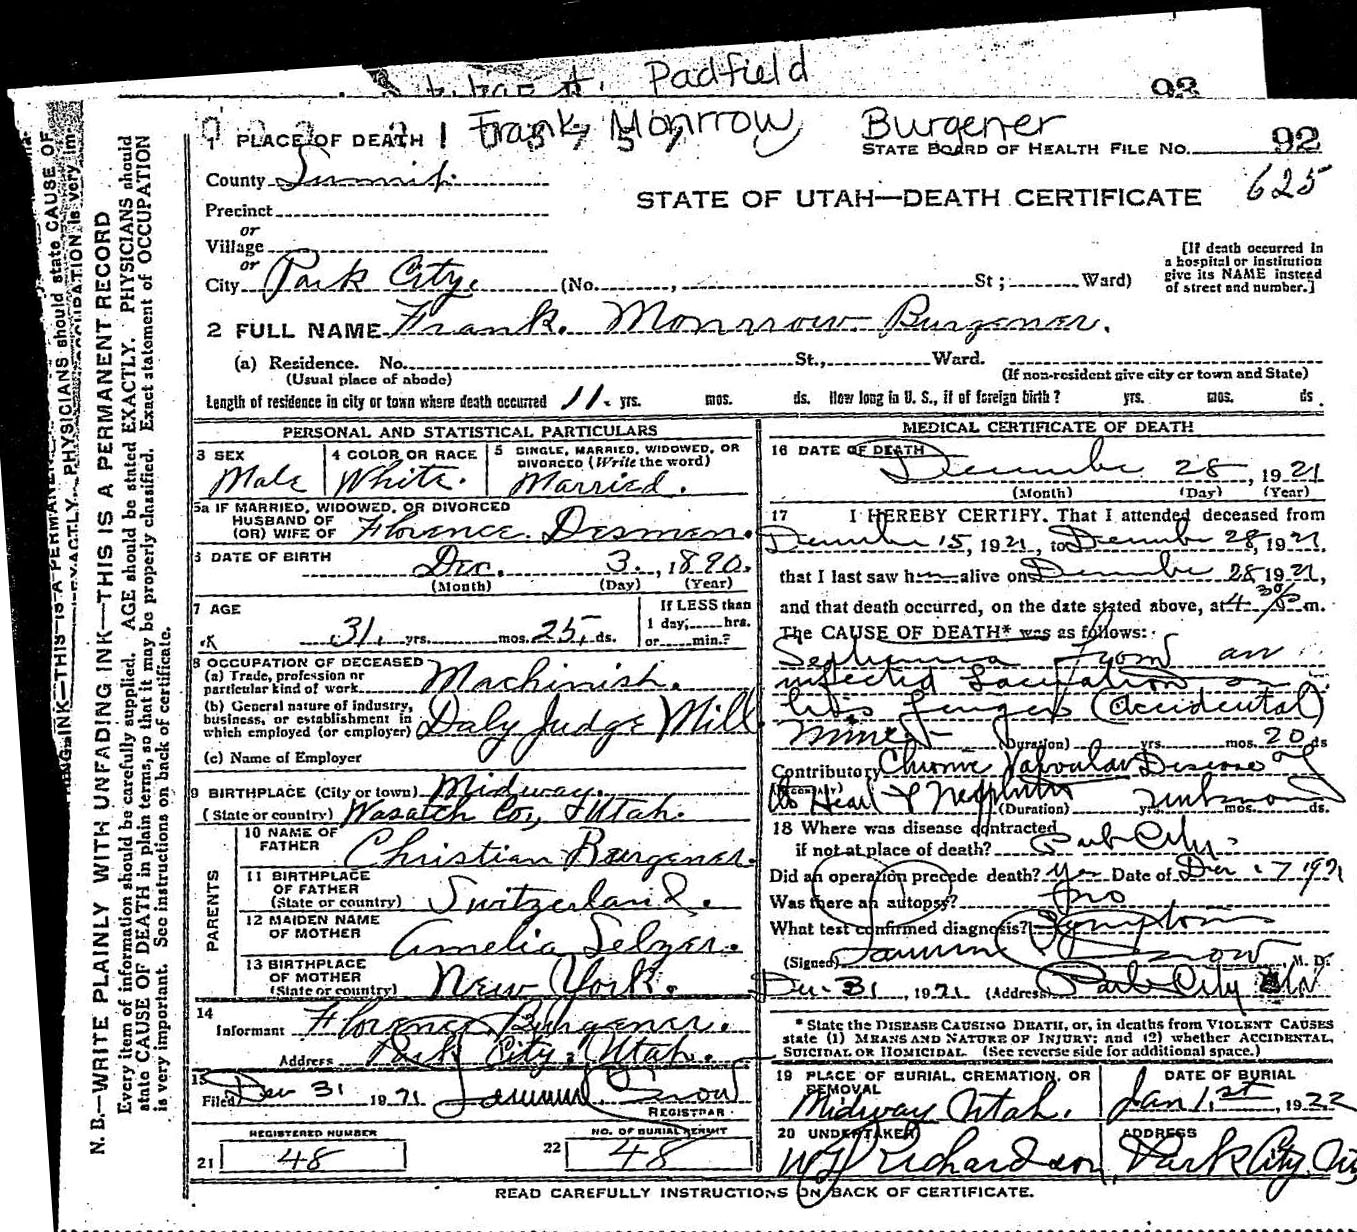 Padfield
92
Frank Monrrow Burgener
1 PLACE OF DEATH
STATE BOARD OF HEALTH FILE No. 92
625
County Summit
STATE OF UTAH—DEATH CERTIFICATE
Precinct
or
Village
or
City Park City. (No. , St ; Ward)
[If death occurred in
a hospital or institution
give its NAME instead
of street and number.]
2 FULL NAME Frank Monrrow Burgener.
(a) Residence. No. St., Ward.
(Usual place of abode) (If non-resident give city or town and State)
Length of residence in city or town where death occurred 11 yrs. mos. ds. How long in U. S., if of foreign birth? yrs. mos. ds.
PERSONAL AND STATISTICAL PARTICULARS
3 SEX 4 COLOR OR RACE 5 SINGLE, MARRIED, WIDOWED, OR
DIVORCED (Write the word)
Male White. Married.
5a IF MARRIED, WIDOWED, OR DIVORCED
HUSBAND OF
(OR) WIFE OF Florence Desmen.
6 DATE OF BIRTH
Dec. 3. , 1890.
(Month) (Day) (Year)
7 AGE If LESS than
1 day; hrs.
31. yrs. mos. 25. ds. or min.?
8 OCCUPATION OF DECEASED
(a) Trade, profession or
particular kind of work Machinist.
(b) General nature of industry,
business, or establishment in
which employed (or employer) Daly Judge Mill
(c) Name of Employer
9 BIRTHPLACE (City or town) Midway.
(State or country) Wasatch Co., Utah.
PARENTS
10 NAME OF
FATHER Christian Burgener.
11 BIRTHPLACE
OF FATHER
(State or country) Switzerland.
12 MAIDEN NAME
OF MOTHER Amelia Selzer.
13 BIRTHPLACE
OF MOTHER
(State or country) New York.
14
Informant Florence Burgener.
Address Park City, Utah.
15
Filed Dec 31 1921 Snow
REGISTRAR
REGISTERED NUMBER
21 48
NO. OF BURIAL PERMIT
22 48
MEDICAL CERTIFICATE OF DEATH
16 DATE OF DEATH
December 28, 1921
(Month) (Day) (Year)
17 I HEREBY CERTIFY. That I attended deceased from
December 15, 1921, to December 28, 1921,
that I last saw h alive on December 28 1921,
and that death occurred, on the date stated above, at 4 30 m.
The CAUSE OF DEATH* was as follows:
Septicemia from an
infected laceration on
his finger (accidental)
(Duration) yrs. mos. 20 ds
Contributory Chronic Valvular Disease of
the Heart & Nephritis (Duration) yrs. unknown mos. ds.
18 Where was disease contracted
if not at place of death? Park City.
Did an operation precede death? yes Date of Dec. 17 1921
Was there an autopsy? no
What test confirmed diagnosis? Symptoms
(Signed) Snow, M. D.
Dec. 31, 1921 (Address) Park City
* State the DISEASE CAUSING DEATH, or, in deaths from VIOLENT CAUSES
state (1) MEANS AND NATURE OF INJURY; and (2) whether ACCIDENTAL,
SUICIDAL OR HOMICIDAL. (See reverse side for additional space.)
19 PLACE OF BURIAL, CREMATION, OR
REMOVAL
Midway Utah.
DATE OF BURIAL
Jan 1st, 1922
20 UNDERTAKER
Richardson
ADDRESS
Park City
READ CAREFULLY INSTRUCTIONS ON BACK OF CERTIFICATE.
N. B.—WRITE PLAINLY WITH UNFADING INK—THIS IS A PERMANENT RECORD
Every item of information should be carefully supplied. AGE should be stated EXACTLY. PHYSICIANS should
state CAUSE OF DEATH in plain terms, so that it may be properly classified. Exact statement of OCCUPATION
is very important. See instructions on back of certificate.